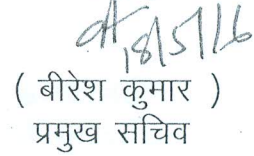 18/5/16
( बीरेश कुमार )
प्रमुख सचिव